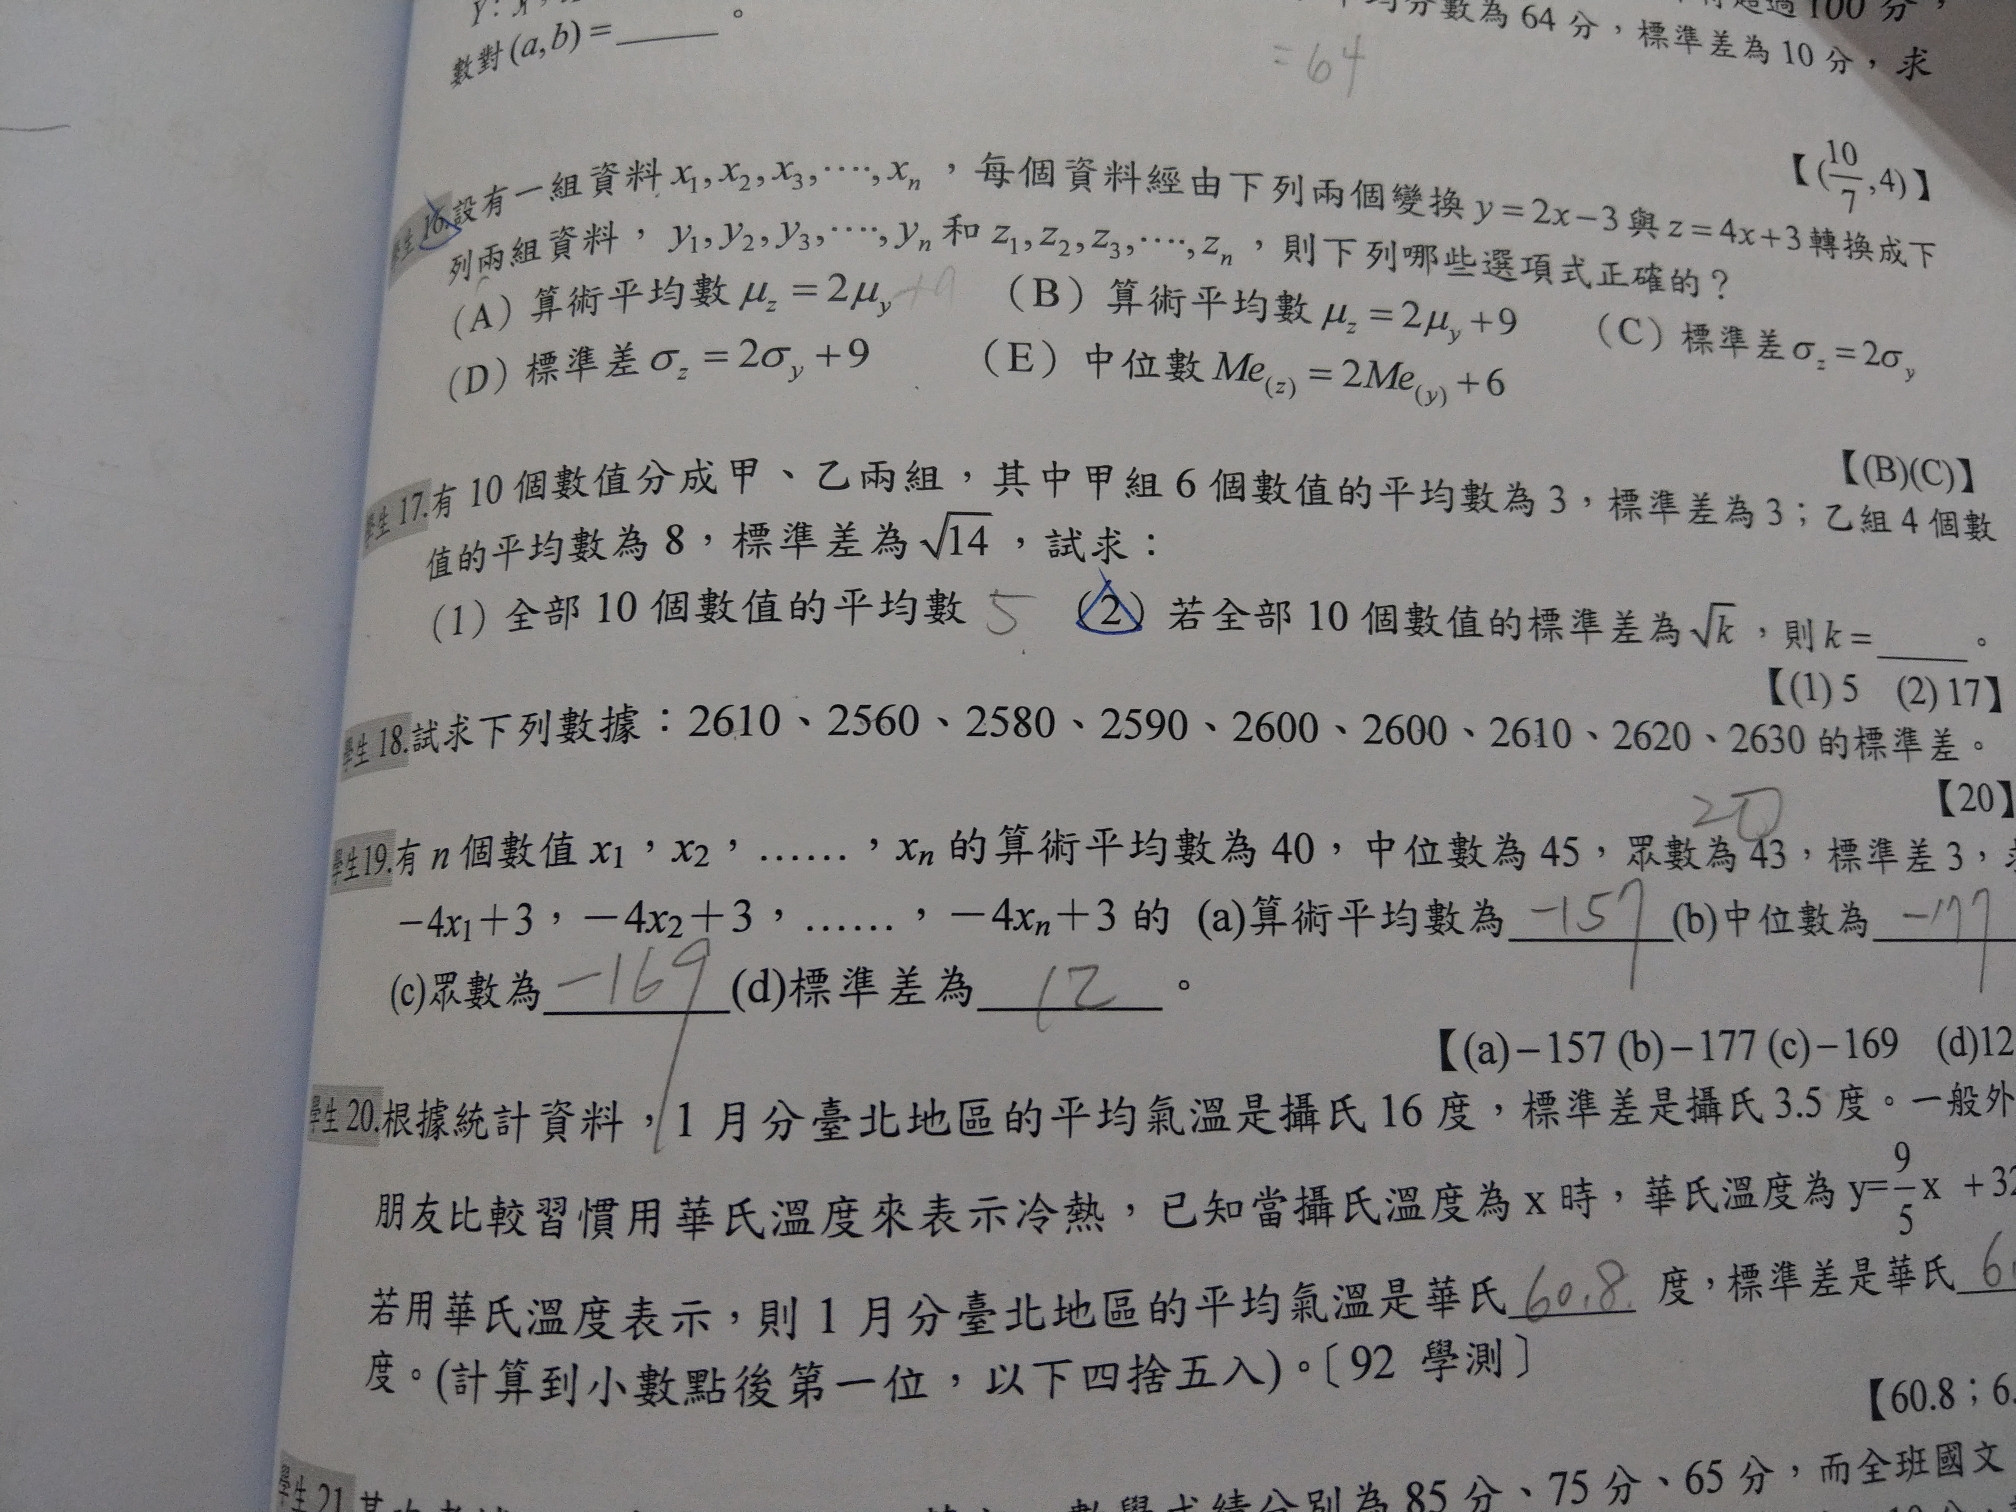 數對(a,b)=______。
均分數為 64 分，標準差為 10 分，求
=64
【(10/7,4)】
學生16.設有一組資料 x₁,x₂,x₃,‧‧‧‧,xₙ，每個資料經由下列兩個變換 y=2x−3 與 z=4x+3 轉換成下
列兩組資料，y₁,y₂,y₃,‧‧‧‧,yₙ 和 z₁,z₂,z₃,‧‧‧‧,zₙ，則下列哪些選項式正確的？
(A) 算術平均數 μ_z = 2μ_y +9 (B) 算術平均數 μ_z = 2μ_y +9 (C) 標準差 σ_z = 2σ_y
(D) 標準差 σ_z = 2σ_y +9 (E) 中位數 Me₍z₎ = 2Me₍y₎ +6
【(B)(C)】
學生17.有 10 個數值分成甲、乙兩組，其中甲組 6 個數值的平均數為 3，標準差為 3；乙組 4 個數
值的平均數為 8，標準差為 √14，試求：
(1) 全部 10 個數值的平均數 5 (2) 若全部 10 個數值的標準差為 √k，則 k=____。
【(1) 5 (2) 17】
學生18.試求下列數據：2610、2560、2580、2590、2600、2600、2610、2620、2630 的標準差。
20 【20】
學生19.有 n 個數值 x₁，x₂，……，xₙ 的算術平均數為 40，中位數為 45，眾數為 43，標準差 3，
−4x₁+3，−4x₂+3，……，−4xₙ+3 的 (a)算術平均數為 −157 (b)中位數為 −177
(c)眾數為 −169 (d)標準差為 12 。
【(a)−157 (b)−177 (c)−169 (d)12
學生20.根據統計資料，1 月分臺北地區的平均氣溫是攝氏 16 度，標準差是攝氏 3.5 度。一般外
朋友比較習慣用華氏溫度來表示冷熱，已知當攝氏溫度為 x 時，華氏溫度為 y=9/5 x +32
若用華氏溫度表示，則 1 月分臺北地區的平均氣溫是華氏 60.8 度，標準差是華氏 6.
度。(計算到小數點後第一位，以下四捨五入)。〔92 學測〕
【60.8；6.
學生21. 數學成績分別為 85 分、75 分、65 分，而全班國文